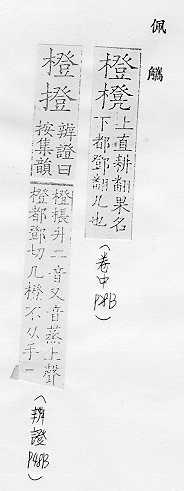 佩觽
橙凳上直耕翻果名
下都鄧翻几也
(卷中
P8B)
橙撜辨證曰
按集韻
橙棖升二音又音蒸上聲
橙都鄧切几橙不从手一
(辨證
P48B)